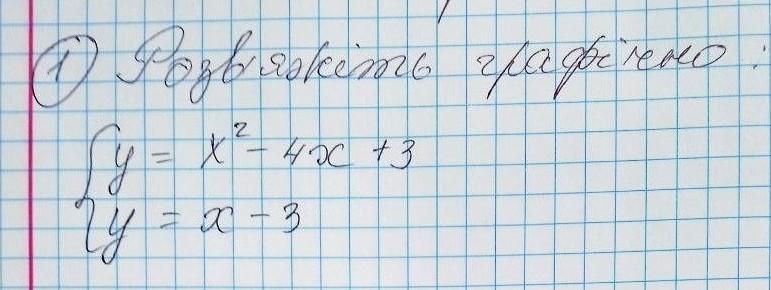 1) Розвяжіть графічно:
y = x² - 4x + 3
y = x - 3